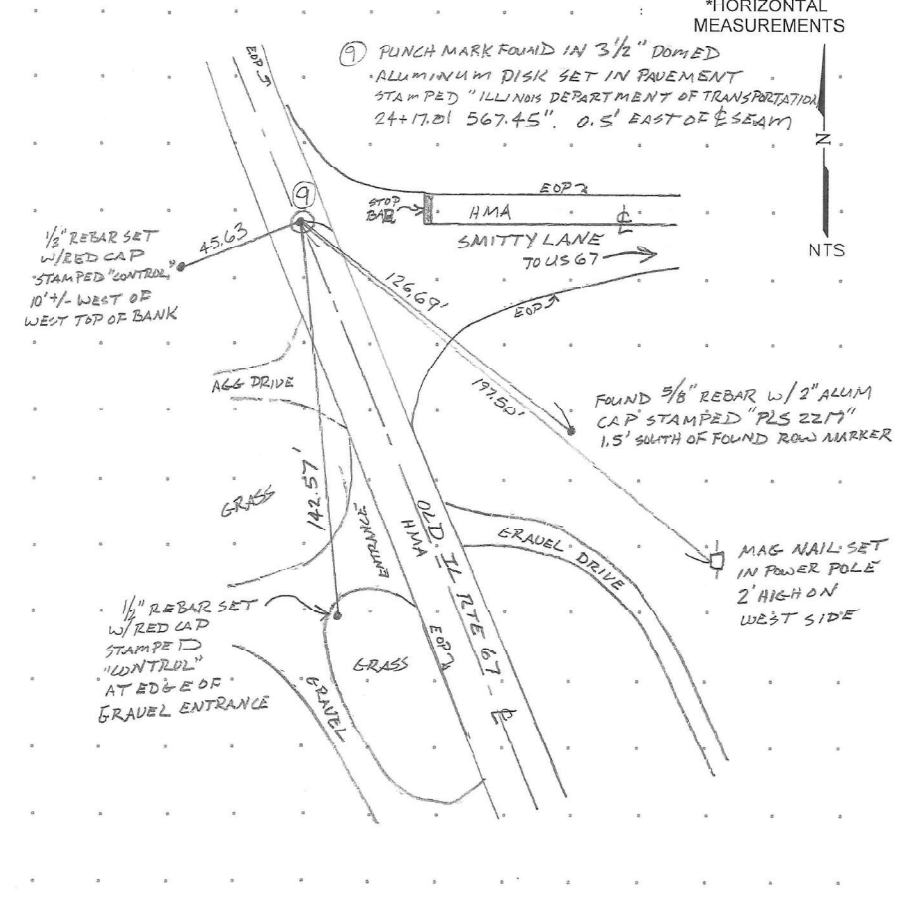 *HORIZONTAL
MEASUREMENTS
EOP
9 PUNCH MARK FOUND IN 3 1/2" DOMED
ALUMINUM DISK SET IN PAVEMENT
STAMPED "ILLINOIS DEPARTMENT OF TRANSPORTATION
24+17.01 567.45". 0.5' EAST OF ℄ SEAM
N
NTS
9
STOP
BAR
EOP
HMA
℄
SMITTY LANE
TO US 67
EOP
1/2" REBAR SET
W/RED CAP
STAMPED "CONTROL"
10'+/- WEST OF
WEST TOP OF BANK
45.63
126.69'
197.50'
AGG DRIVE
FOUND 5/8" REBAR W/ 2" ALUM
CAP STAMPED "PLS 2217"
1.5' SOUTH OF FOUND ROW MARKER
GRASS
142.57'
ENTRANCE
OLD IL RTE 67 ℄
HMA
GRAVEL DRIVE
MAG NAIL SET
IN POWER POLE
2' HIGH ON
WEST SIDE
1/2" REBAR SET
W/RED CAP
STAMPED
"CONTROL"
AT EDGE OF
GRAVEL ENTRANCE
GRASS
EOP
GRAVEL